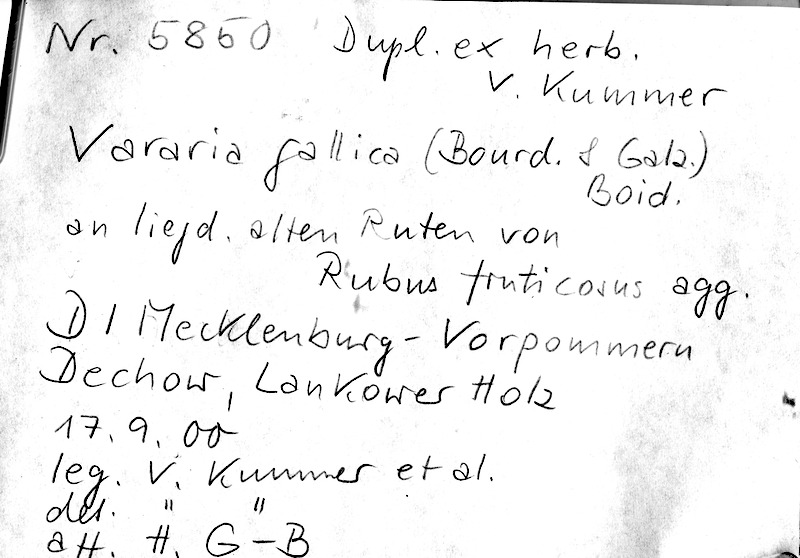 Nr. 5850 Dupl. ex herb.
V. Kummer
Vararia gallica (Bourd. & Galz.)
Boid.
an liegd. alten Ruten von
Rubus fruticosus agg.
D / Mecklenburg-Vorpommern
Dechow, Lankower Holz
17. 9. 00
leg. V. Kummer et al.
det. " "
att. H. G-B